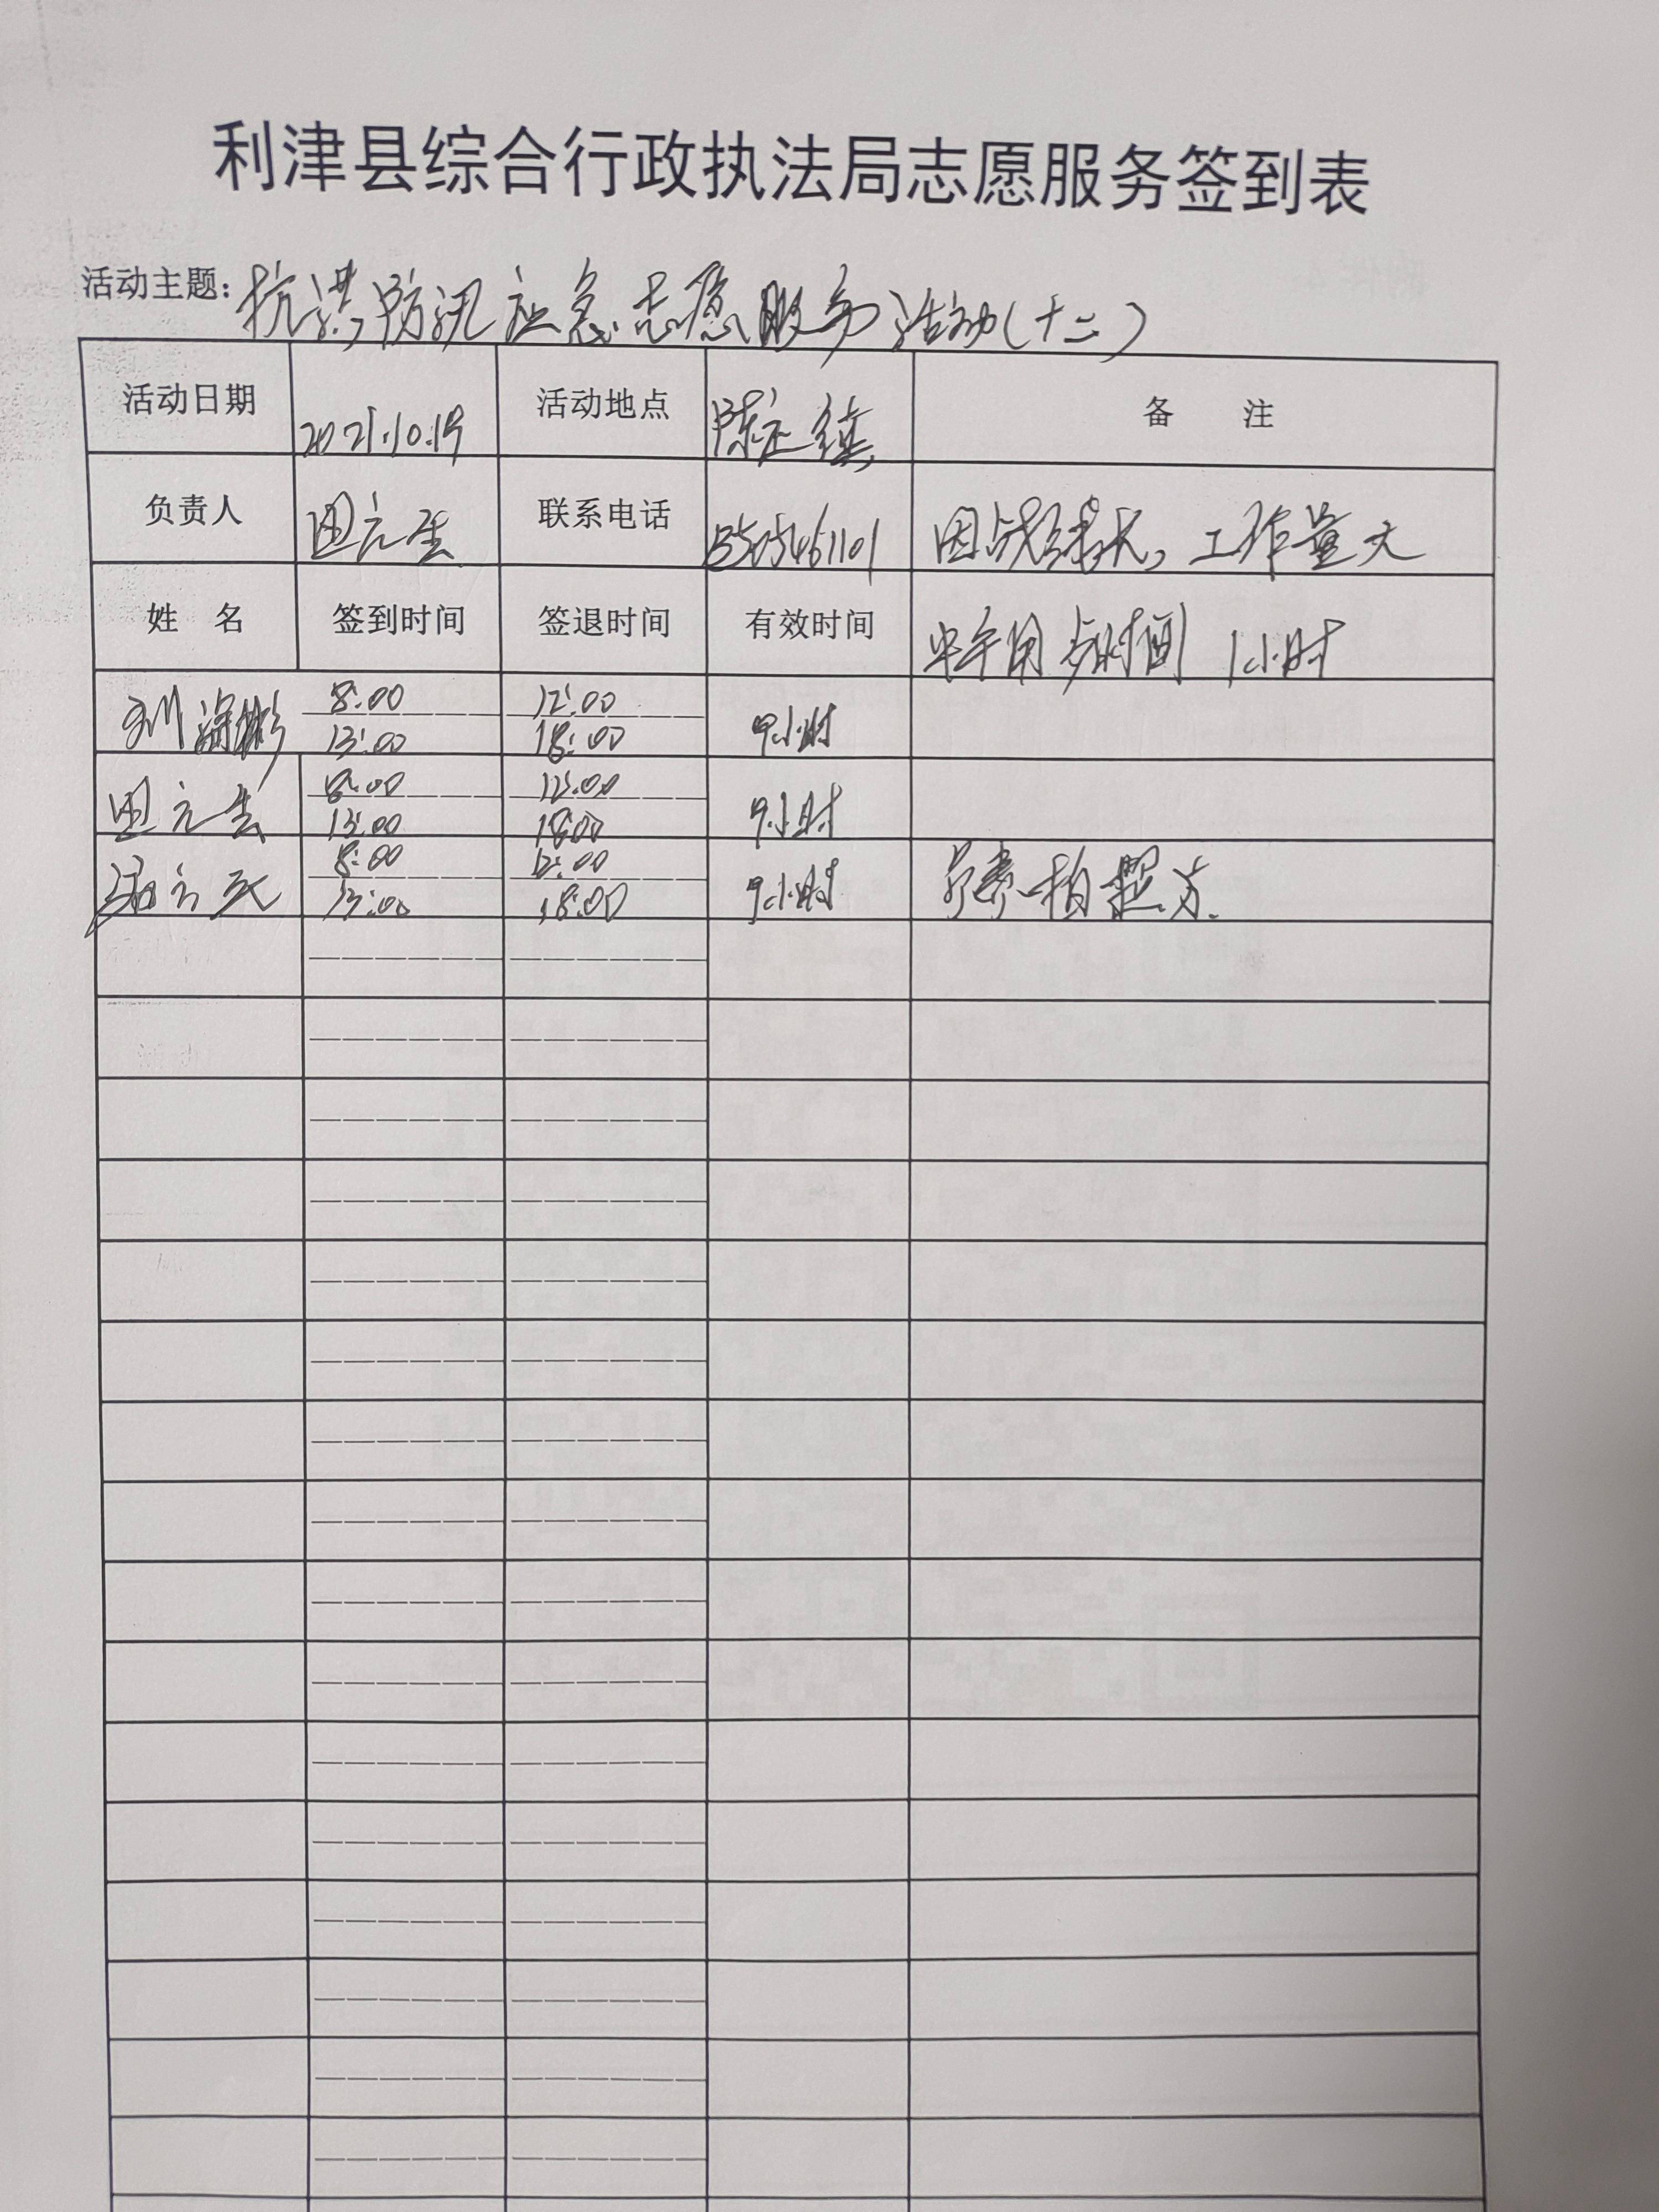 利津县综合行政执法局志愿服务签到表
活动主题：抗洪防汛应急志愿服务活动（十二）
活动日期 2021.10.19 活动地点 陈庄镇 备 注
负责人 田元生 联系电话 15505461101 因战线长，工作量大
姓 名 签到时间 签退时间 有效时间 中午用时间 1小时
刘 8:00 12:00
13:00 18:00 9小时
田元生 8:00 12:00
13:00 18:00 9小时
8:00 12:00
13:00 18:00 9小时 拍照